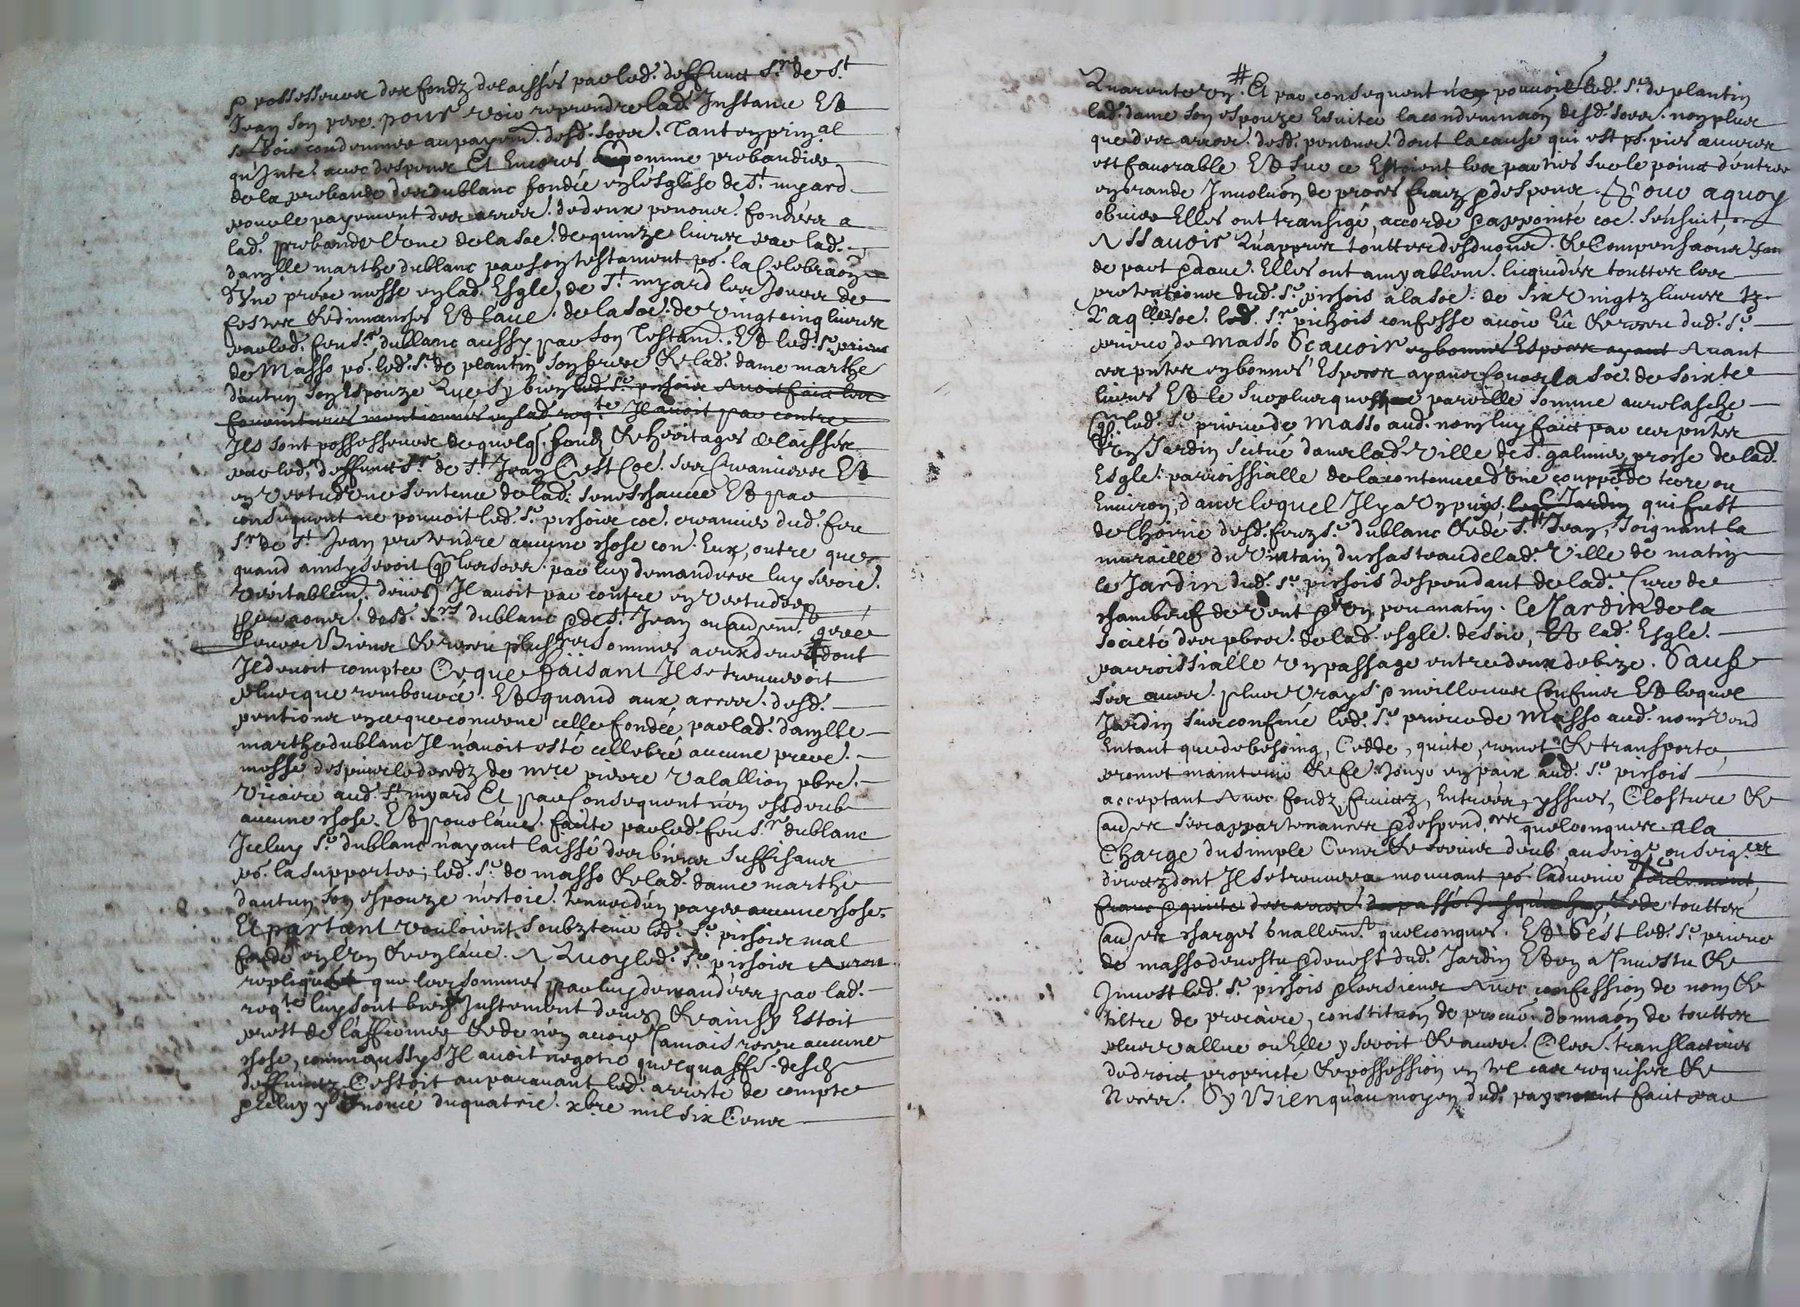 possesseur des fondz delaissés par led. deffunct Sr. de St.
Jean son pere pour veoir reprendre lad. Instance Et
se veoir condemner au payem. desd. som. Tant en prinal
qu'Intes. avec despens Et Encores comme prebandier
de la prebande des dublanc fondée en l'esglise de St. myard
pour le payement des arrer. de deux penons. fondées a
lad. prebande l'une de la soe. de quinze livres par lad.
damlle marthe dublanc par son testament po. la Celebraon
d'Une préée messe en lad. Esgle. de St. myard les Jours de
festes & dimanches Et l'aue. de la soe. de vingt cinq livres
par led. feu Sr. dublanc aussy par son Testam. Et led. Sr. prieur
de Masso po. led. Sr. de plantin son frere & lad. dame marthe
dautun son Espouze que sy bien led. Sr. pichois avoit faict les
fournitures mentionnés en lad. reqte Il avoit par contre
Ils sont possesseurs de quelq. fondz & heritages delaissés
par led. deffunct Sr. de St. Jean C'est Coe. ses Creanciers Et
en vertu d'une sentence de lad. seneschaucée Et par
consequent ne pouvoit led. Sr. pichois coe. creancier dud. feu
Sr. de St. Jean pretendre aucune chose con. Eux, outre que
quand ainsy seroit que les som. par luy demandées luy seroie.
veritablem. deues Il avoit par contre en vertu des
desd. Srs dublanc & de St. Jean ou auem. geré
leurs Biens & receu plusrs sommes a eux deues dont
Il devoit compter Ce que faisant Il se trouveroit
plus que rembourcé. Et quand aux arrer. desd.
pentions en ce que concerne celle fondée par lad. damlle
marthe dublanc Il n'avoit esté cellebré aucune preée.
messe despuis le decedz de mre pierre valallion pbre.
vicaire aud. St. myard Et par Consequent n'en est deub
aucune chose. Et pour l'aue. faite par led. feu Sr. dublanc
Iceluy Sr. dublanc n'ayant laissé des biens suffisans
po. la supporter, led. Sr. de masso & lad. dame marthe
dautun son espouze n'estoie. tenus d'en payer aucune chose
Et partant vouloient soubztenir led. Sr. pichois mal
fondé en l'un & en l'aue. A Quoy led. Sr. pichois
repliquoit que les sommes par luy demandées par lad.
reqte luy sont bien Justement deues & ainsy Estoit
prest de l'affirmer & de n'en avoir Jamais receu aucune
chose, comm'aussy s'Il avoit negotié quelq. affe. desd.
deffunctz C'estoit auparavant led. arresté de compte
Iceluy y enoncé du quatrie. xbre mil six Cens
Quarante un # Et par consequent n'en pouvoit led. Sr. de plantin
lad. dame son espouze Esviter la condemnaon desd. som. non plus
que des arrer. desd. pentions dont la cause qui est po. pies œuvres
est favorable Et sur ce Estoient les parties sur le point d'entrer
en grande Involuon de proces fraiz & despens. Pour a quoy
obvier Elles ont transigé, accordé & appointé coe. s'ensuit,
A Ssavoir Qu'appres touttes desduons. & Compensaons
de part & daue. Elles ont amyablem. licquidés touttes les
pretentions dud. Sr. pichois a la soe. de six vingtz livres tz
Laqlle soe. led. Sr. pichois confesse avoir Eü & receu dud. Sr.
prieur de Masso Scavoir en bonnes Especes ayant Avant
ces pntes en bonnes Especes ayans cours la soe. de soixte
livres Et le surplus que pareille somme au relasche
que led. Sr. prieur de Masso aud. nom luy faict par ces pntes
d'un Jardin scitué dans lad. ville de St. galmier proche de lad.
Esgle. parroissialle de la contenue d'une couppée de terre ou
Environ, dans lequel Il y a un puys. led. Jardin qui fust
de l'hoirie desd. feuz Sr. dublanc & de St. Jean, Joignant la
muraille du vintain du chasteau de lad. ville de matin
le Jardin dud. Sr. pichois despendant de lad. Cure de
chambeuf de vent & un peu matin. Le Jardin de la
societé des pbres. de lad. esgle. de soir, Et lad. Esgle.
parroissialle un passage entre deux de bize. Sauf
ses aues. plus vrays & meilleurs Confins Et lequel
Jardin sus confiné led. Sr. prieur de Masso aud. nom vend
Entant que de besoing, Cedde, quite, remet & transporte,
promet maintenir & fe. Jouyr en paix aud. Sr. pichois
acceptant Avec fondz, fruictz, Entrées, yssues, Closture &
aues ses appartenances & despend. quelconques. a la
Charge du simple Cens & servis deub au seigr ou seigrs
directz dont Il se trouvera mouvant po. l'advenir seulement
franc & quite des arrer. du passé Jusques huy, & de touttes
aues charges quallem. quelconques. Et s'est led. Sr. prieur
de masso devestu & devest dud. Jardin Et en a Investu &
Invest led. Sr. pichois & les siens Avec confession de nom &
tiltre de precaire, constituon de procur. donnaon de touttes
plus vallue ou Elle y seroit & aues. Cles. translactives
de droict proprieté & possession en tel cas requises &
Necess. Sy Bien qu'au moyen dud. payement faict par